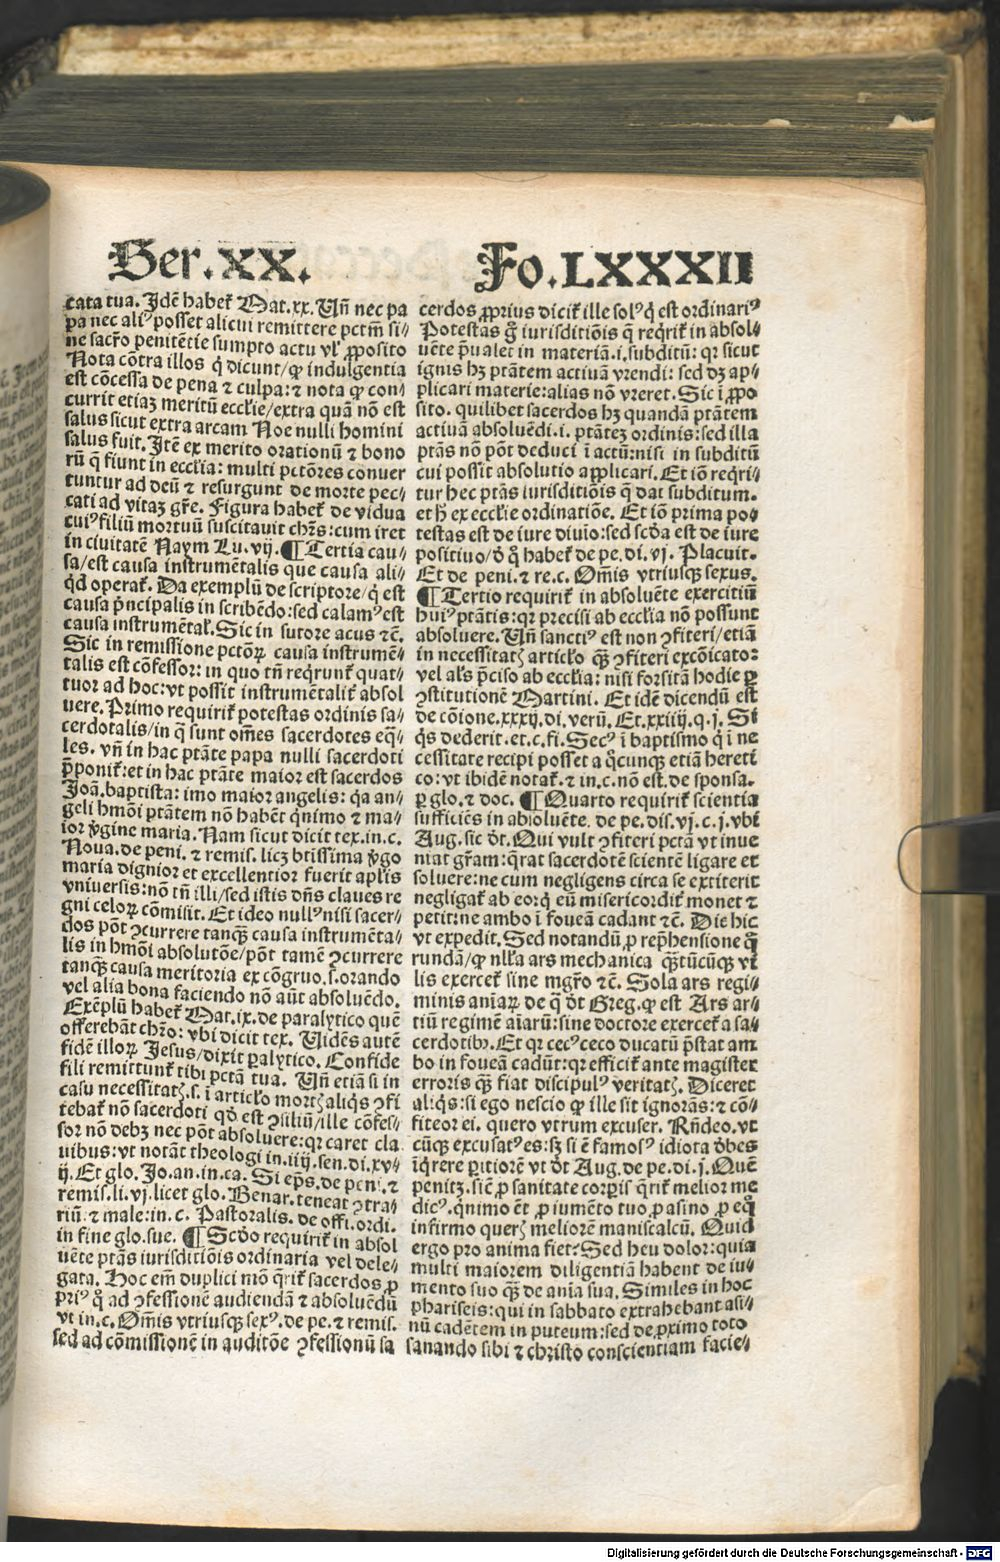 Ser.XX.
Fo.LXXXII
cata tua. Idẽ habet᷑ Mat.xx. Vñ nec pa
pa nec aliꝰ posset alicui remittere pctm̃ si⸗
ne sacro penitẽtie sumpto actu vl' ꝓposito
Nota cõtra illos q̇ dicunt/ꝙ indulgentia
est cõcessa de pena ⁊ culpa: ⁊ nota ꝙ con⸗
currit etiaꝫ meritũ eccl'ie/extra quã nõ est
salus sicut extra arcam Noe nulli homini
salus fuit. Itẽ ex merito orationũ ⁊ bono
rũ q̃ fiunt in eccl'ia: multi pctõres conuer
tuntur ad deũ ⁊ resurgunt de morte pec⸗
cati ad vitaꝫ gr̃e. Figura habet᷑ de vidua
cuiꝰ filiũ mortuũ suscitauit chr̃s: cum iret
in ciuitatẽ Naym Lu.vij. ¶ Tertia cau⸗
sa/est causa instrumẽtalis que causa ali⸗
q̇d operat᷑. Da exemplũ de scriptore/q̇ est
causa p̃ncipalis in scribẽdo: sed calamꝰ est
causa instrumẽtal'. Sic in sutore acus ⁊c̃.
Sic in remissione pctõꝝ causa instrumẽ⸗
talis est cõfessor: in quo tñ reqr̃unt᷑ quat⸗
tuor ad hoc: vt possit instrumẽtalit᷑ absol
uere. Primo requirit᷑ potestas ordinis sa⸗
cerdotalis/in q̃ sunt om̃es sacerdotes eq̃⸗
les. vñ in hac ptãte papa nulli sacerdoti
p̃ponit᷑: et in hac ptãte maior est sacerdos
Joã.baptista: imo maior angelis: q̃a an⸗
geli hmõi ptãtem nõ habẽt q̇nimo ⁊ ma⸗
ior v̾gine maria. Nam sicut dicit tex.in.c.
Noua.de peni. ⁊ remis. licꝫ btissima v̾go
maria dignior et excellentior fuerit apl'is
vniuersis: nõ tñ illi/sed istis dñs claues re
gni celoꝝ cõmisit. Et ideo nullꝰ nisi sacer⸗
dos põt ꝯcurrere tanq̃ꝫ causa instrumẽta⸗
lis in hmõi absolutõe/põt tamẽ ꝯcurrere
tanq̃ꝫ causa meritoria ex cõgruo.ſ.orando
vel alia bona faciendo nõ aũt absoluẽdo.
Exẽplũ habet᷑ Mat.ix.de paralytico quẽ
offerebãt chr̃o: vbi dicit tex. Uidẽs autẽ
fidẽ illoꝝ Jesus/dixit ꝑalytico. Confide
fili remittunt᷑ tibi pctã tua. Vñ etiã si in
casu necessitatꝭ.ſ. ĩ articl'o mortꝭ aliq̇s ꝯfi
tebat᷑ nõ sacerdoti qď est ꝯsiliũ/ille cõfes⸗
sor nõ debꝫ nec põt absoluere: qꝛ caret cla
uibus: vt notãt theologi in.iiij.sen.di.xv⸗
ij. Et glo. Jo.an.in.ca. Si ep̃s.de peni.⁊
remis.li.vj.licet glo. Benar.teneat ꝯtra⸗
riũ: ⁊ male: in.c. Pastoralis.de offi.ordi.
in fine glo.sue. ¶ Scďo requirit᷑ in absol
uẽte ptãs iurisditiõis ordinaria vel dele⸗
gata. Hoc em̃ duplici mõ q̇rit᷑ sacerdos ꝓ
priꝰ q̇ ad ꝯfessionẽ audiendã ⁊ absoluẽdũ
vt in.c. Om̃is vtriusqꝫ sexꝰ.de pe.⁊ remis.
sed ad cõmissionẽ in auditõe ꝯfessionũ sa
cerdos ꝓprius dicit᷑ ille solꝰ q̇ est ordinariꝰ
Potestas g̃ iurisditiõis q̃ reqr̃it᷑ in absol⸗
uẽte p̃ualet in materiã.i.subditũ: qꝛ sicut
ignis hꝫ ptãtem actiuã vrendi: sed dꝫ ap⸗
plicari materie: alias nõ vreret. Sic ĩ ꝓpo
sito. quilibet sacerdos hꝫ quandã ptãtem
actiuã absoluẽdi.i. ptãteꝫ ordinis: sed illa
ptãs nõ põt deduci ĩ actũ: nisi in subditũ
cui possit absolutio applicari. Et iõ reqr̃i⸗
tur hec ptãs iurisditiõis q̃ dat subditum.
et h̃ ex eccl'ie ordinatiõe. Et iõ prima po⸗
testas est de iure diuio: sed scďa est de iure
positiuo/ď q̃ habet᷑ de pe.di.vj. Placuit.
Et de peni.⁊ re.c. Om̃is vtriusqꝫ sexus.
¶ Tertio requirit᷑ in absoluẽte exercitiũ
huiꝰ ptãtis: qꝛ precisi ab eccl'ia nõ possunt
absoluere. Vñ sanctiꝰ est non ꝯfiteri/etiã
in necessitatꝭ articl'o q̃ꝫ ꝯfiteri excõicato:
vel al's p̃ciso ab eccl'ia: nisi forsitã hodie ꝑ
ꝯstitutionẽ Martini. Et idẽ dicendũ est
de cõione.xxxij.di.verũ. Et.xxiiij.q.j. Si
q̇s dederit.et.c.fi. Secꝰ ĩ baptismo q̇ ĩ ne
cessitate recipi posset a q̇cunqꝫ etiã hereti
co: vt ibidẽ notat᷑.⁊ in.c.nõ est.de sponsa.
ꝑ glo.⁊ doc. ¶ Quarto requirit᷑ scientia
sufficiẽs in absoluẽte. de pe.dis.vj.c.j.vbi
Aug.sic d̃t. Qui vult ꝯfiteri pctã vt inue
niat gr̃am: q̃rat sacerdotẽ scientẽ ligare et
soluere: ne cum negligens circa se extiterit
negligat᷑ ab eo: q̇ eũ misericordit᷑ monet ⁊
petit: ne ambo ĩ foueã cadant ⁊c̃. Dic hic
vt expedit. Sed notandũ ꝓ rep̃hensione q̃
rundã/ꝙ nll'a ars mechanica q̃ꝫtũcũqꝫ vi
lis exercet᷑ sine mgr̃o ⁊c̃. Sola ars regi⸗
minis aniaꝝ de q̃ d̃t Greg.ꝙ est Ars ar⸗
tiũ regimẽ aĩarũ: sine doctore exercet᷑ a sa⸗
cerdotibꝰ. Et qꝛ cecꝰ ceco ducatũ p̃stat am
bo in foueã cadũt: qꝛ efficit᷑ ante magister
erroris q̃ꝫ fiat discipulꝰ veritatꝭ. Diceret
aliq̇s: si ego nescio ꝙ ille sit ignorãs: ⁊ cõ⸗
fiteor ei. quero vtrum excuser. Rñdeo.vt
cũqꝫ excusatꝰ es: sꝫ si ẽ famosꝰ idiota ďbes
ĩq̇rere ꝑitiorẽ vt d̃t Aug.de pe.di.j. Quẽ
penitꝫ. siẽ ꝓ sanitate corꝑis q̇rit᷑ melior me
dicꝰ. q̇nimo ẽt ꝓ iumẽto tuo ꝓ asino ꝓ eq̃
infirmo querꝭ meliorẽ maniscalcũ. Quid
ergo pro anima fiet? Sed heu dolor: quia
multi maiorem diligentiã habent de iu⸗
mento suo q̃ꝫ de anĩa sua. Similes in hoc
phariseis: qui in sabbato extrahebant asi⸗
nũ cadẽtem in puteum: sed de ꝓximo toto
sanando sibi ⁊ christo conscientiam facie⸗
Digitalisierung gefördert durch die Deutsche Forschungsgemeinschaft - DFG